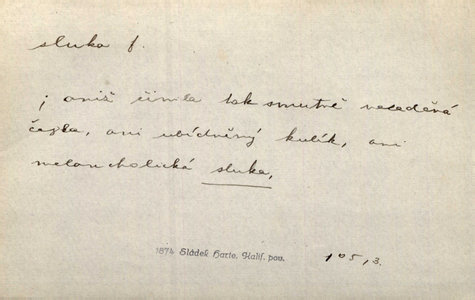 sluka f.
; aniž činila tak smutně
čajka, ani ubídněný kulík, ani
melancholická sluka,
1874 Sládek Harto, Kalif. pov. 105,3.